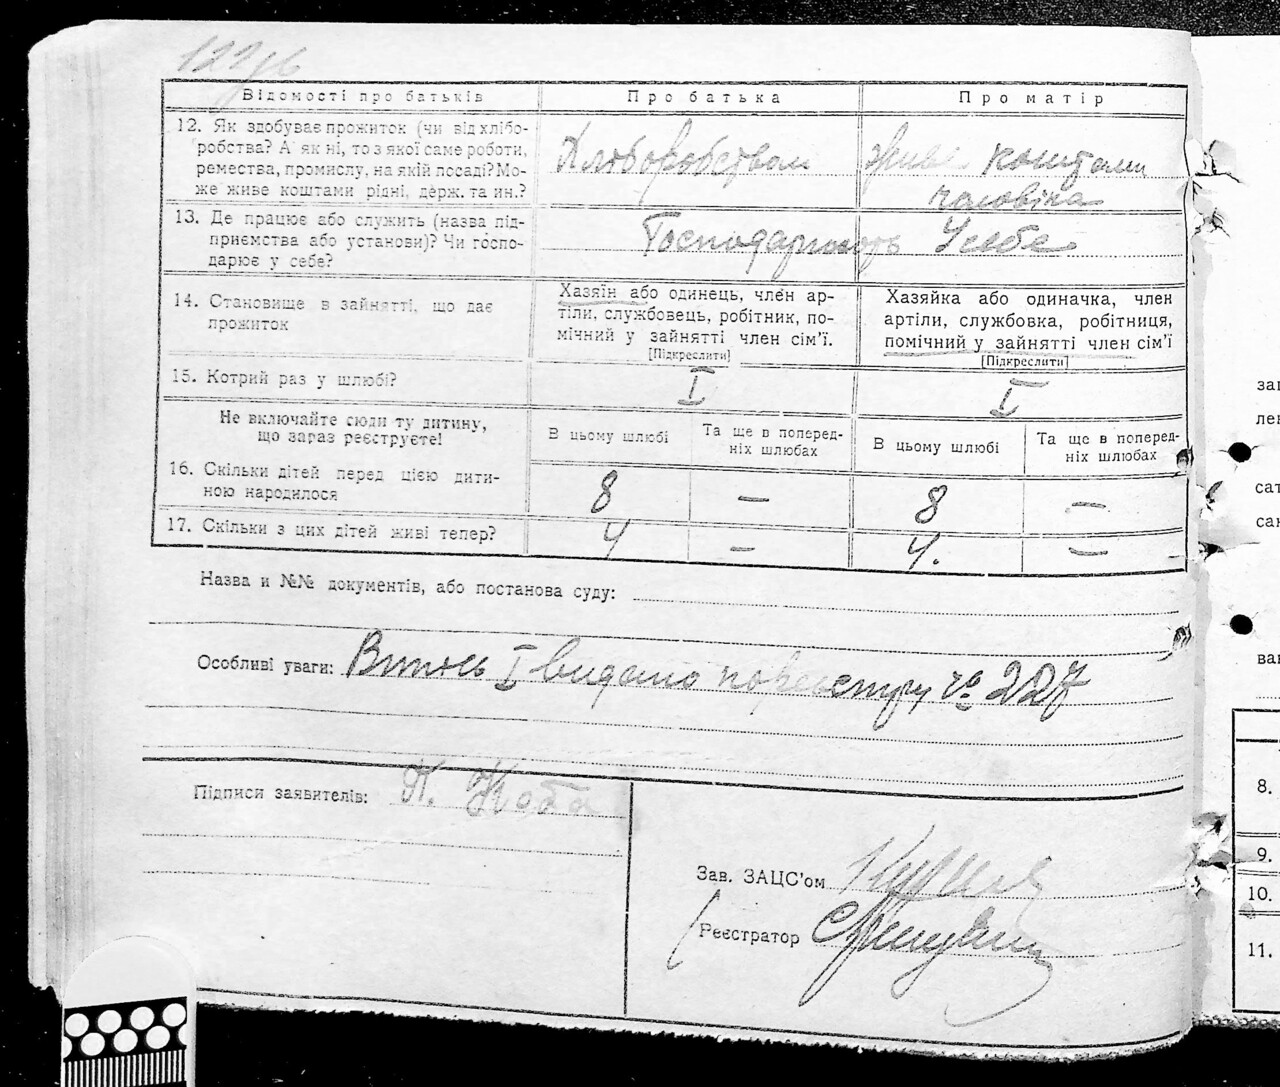 Відомості про батьків Про батька Про матір
12. Як здобуває прожиток (чи від хлібо-
робства? А як ні, то з якої саме роботи,
ремества, промислу, на якій посаді? Мо-
же живе коштами рідні, держ. та ин.?
Хлібробством
живе коштами
чоловіка
13. Де працює або служить (назва під-
приємства або установи)? Чи госпо-
дарює у себе?
Господарюють У себе
14. Становище в зайнятті, що дає
прожиток
Хазяїн або одинець, член ар-
тіли, службовець, робітник, по-
мічний у зайнятті член сім'ї.
[Підкреслити]
Хазяйка або одиначка, член
артіли, службовка, робітниця,
помічний у зайнятті член сім'ї
[Підкреслити]
15. Котрий раз у шлюбі? I I
Не включайте сюди ту дитину,
що зараз реєструєте!
В цьому шлюбі
Та ще в поперед-
ніх шлюбах
В цьому шлюбі
Та ще в поперед-
ніх шлюбах
16. Скільки дітей перед цією дити-
ною народилося
8 — 8 —
17. Скільки з цих дітей живі тепер? 4 — 4. —
Назва и №№ документів, або постанова суду:
Особливі уваги: Витяг I видано по реєстру № 227
Підписи заявителів:
Зав. ЗАЦС'ом
Реєстратор
заг
лен
сат
сан
ван
8.
9.
10.
11.